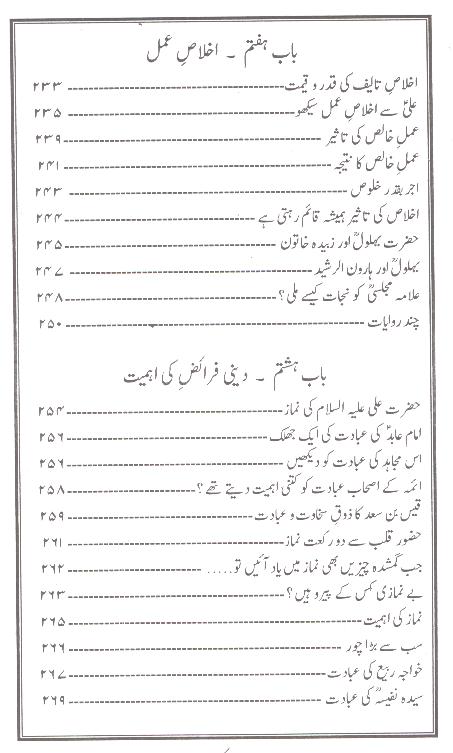 باب ہفتم ۔ اخلاصِ عمل
اخلاصِ تالیف کی قدر و قیمت ۲۳۳
علیؑ سے اخلاصِ عمل سیکھو ۲۳۵
عملِ خالص کی تاثیر ۲۳۹
عملِ خالص کا نتیجہ ۲۴۱
اجر بقدر خلوص ۲۴۳
اخلاص کی تاثیر ہمیشہ قائم رہتی ہے ۲۴۴
حضرت بہلولؒ اور زبیدہ خاتون ۲۴۵
بہلولؒ اور ہارون الرشید ۲۴۷
علامہ مجلسیؒ کو نجات کیسے ملی؟ ۲۴۸
چند روایات ۲۵۰
باب ہشتم ۔ دینی فرائض کی اہمیت
حضرت علی علیہ السلام کی نماز ۲۵۴
امام عابدؑ کی عبادت کی ایک جھلک ۲۵۶
اس مجاہد کی عبادت کو دیکھیں ۲۵۶
ائمہ کے اصحاب عبادت کو کتنی اہمیت دیتے تھے؟ ۲۵۸
قیس بن سعد کا ذوقِ سخاوت و عبادت ۲۵۹
حضور قلب سے دو رکعت نماز ۲۶۱
جب گمشدہ چیزیں بھی نماز میں یاد آئیں تو..... ۲۶۲
بے نمازی کس کے پیرو ہیں؟ ۲۶۳
نماز کی اہمیت ۲۶۵
سب سے بڑا چور ۲۶۶
خواجہ ربیع کی عبادت ۲۶۷
سیدہ نفیسہؒ کی عبادت ۲۶۹